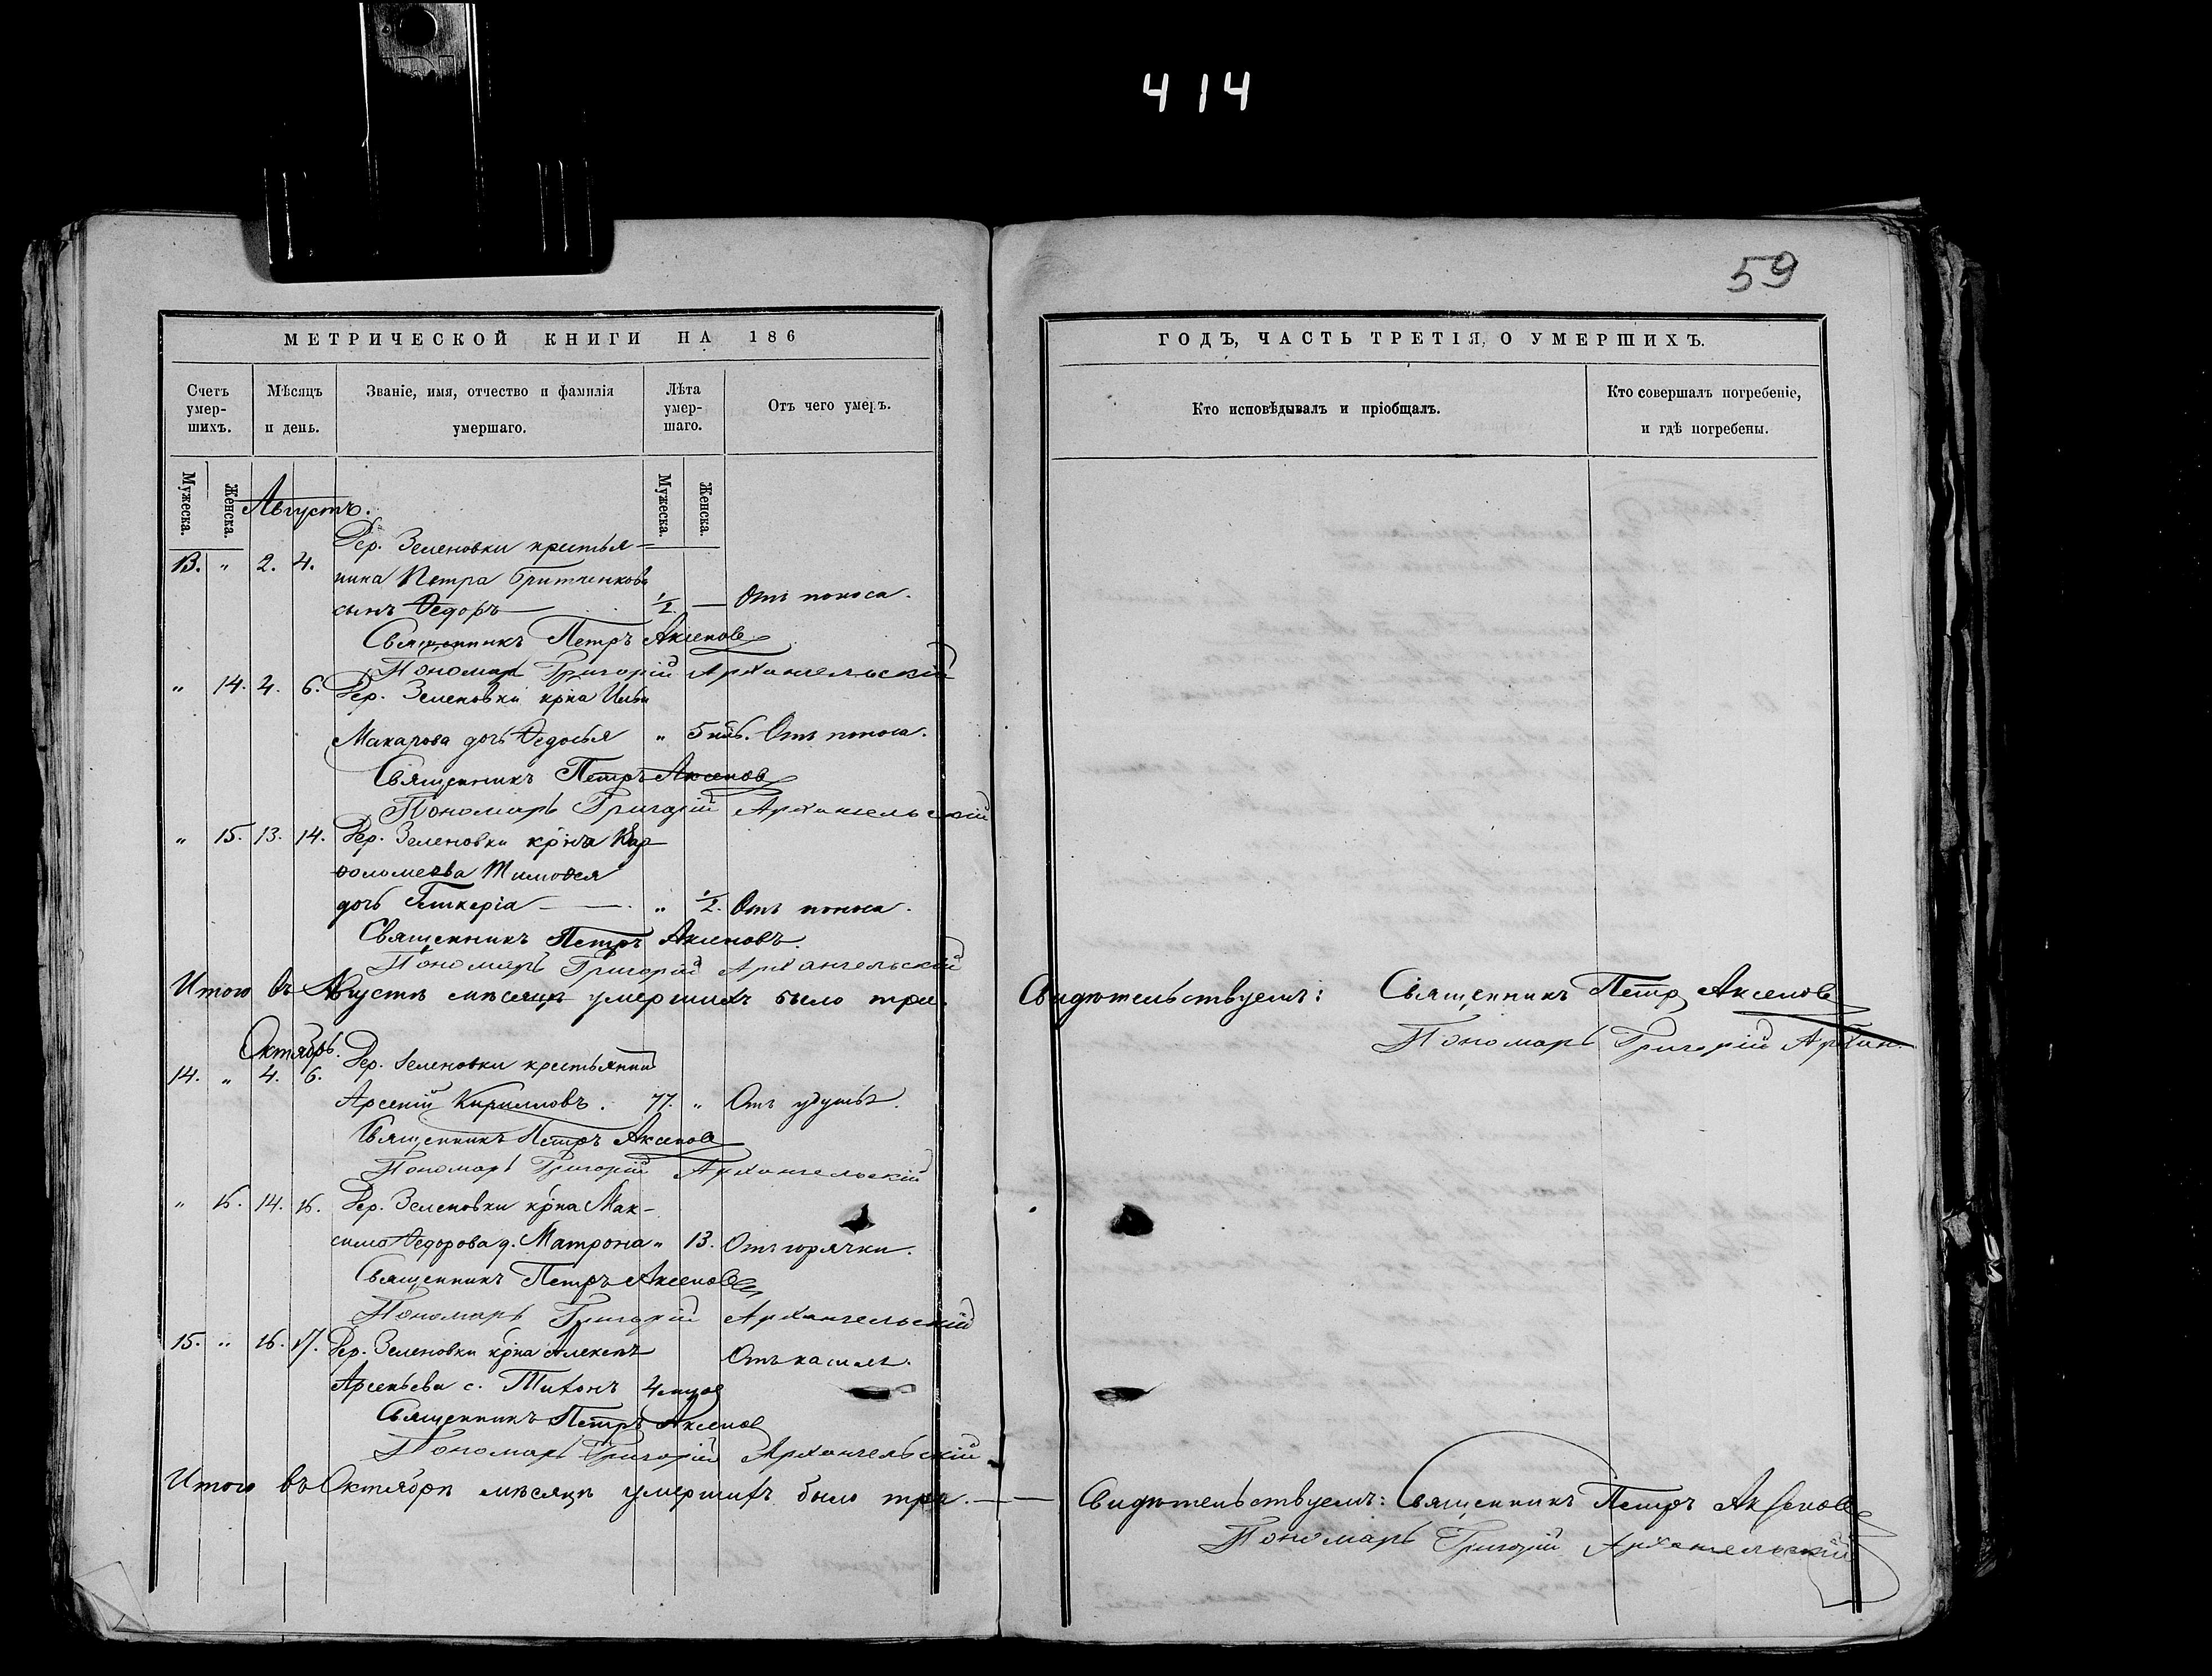 414
59
МЕТРИЧЕСКОЙ КНИГИ НА 186
Счетъ умер-шихъ.
Мѣсяцъ и день.
Званіе, имя, отчество и фамилія умершаго.
Лѣта умер-шаго.
Отъ чего умеръ.
Мужеска.
Женска.
Мужеска.
Женска.
Августъ.
Дер. Зеленовки крестья-
13. " 2. 4. нина Петра
сынъ Ѳедоръ — 1/2. — Отъ поноса.
Священникъ Петръ Аксеновъ
Пономарь Григорій Архангельскій
" 14. 4. 6. Дер. Зеленовки кр̃на Ильи
Макарова дочь Ѳедосья " 5 Отъ поноса.
Священникъ Петръ Аксеновъ
Пономарь Григорій Архангельскій
" 15. 13. 14. Дер. Зеленовки кр̃на Вар-
ѳоломеева Тимоѳея
дочь Гликерія — — . " 1/2. Отъ поноса.
Священникъ Петръ Аксеновъ.
Пономарь Григорій Архангельскій
Итого въ Августѣ мѣсяцѣ умершихъ было три.
Октябрь.
14. " 4. 6. Дер. Зеленовки крестьянинъ
Арсеній Кирилловъ. 77. " Отъ удушья.
Священникъ Петръ Аксеновъ
Пономарь Григорій Архангельскій
" 16. 14. 16. Дер. Зеленовки кр̃на Мак-
сима Ѳедорова д. Матрона " 13. Отъ горячки.
Священникъ Петръ Аксеновъ
Пономарь Григорій Архангельскій
15. " 16. 17. Дер. Зеленовки кр̃на Алексѣя Отъ кашля.
Арсеньева с. Тихонъ 4
Священникъ Петръ Аксеновъ
Пономарь Григорій Архангельскій
Итого въ Октябрѣ мѣсяцѣ умершихъ было три. —
ГОДЪ, ЧАСТЬ ТРЕТІЯ, О УМЕРШИХЪ.
Кто исповѣдывалъ и пріобщалъ.
Кто совершалъ погребеніе, и гдѣ погребены.
Свидѣтельствуемъ: Священникъ Петръ Аксеновъ
Пономарь Григорій Архан.
— Свидѣтельствуемъ: Священникъ Петръ Аксеновъ
Пономарь Григорій Архангельскій